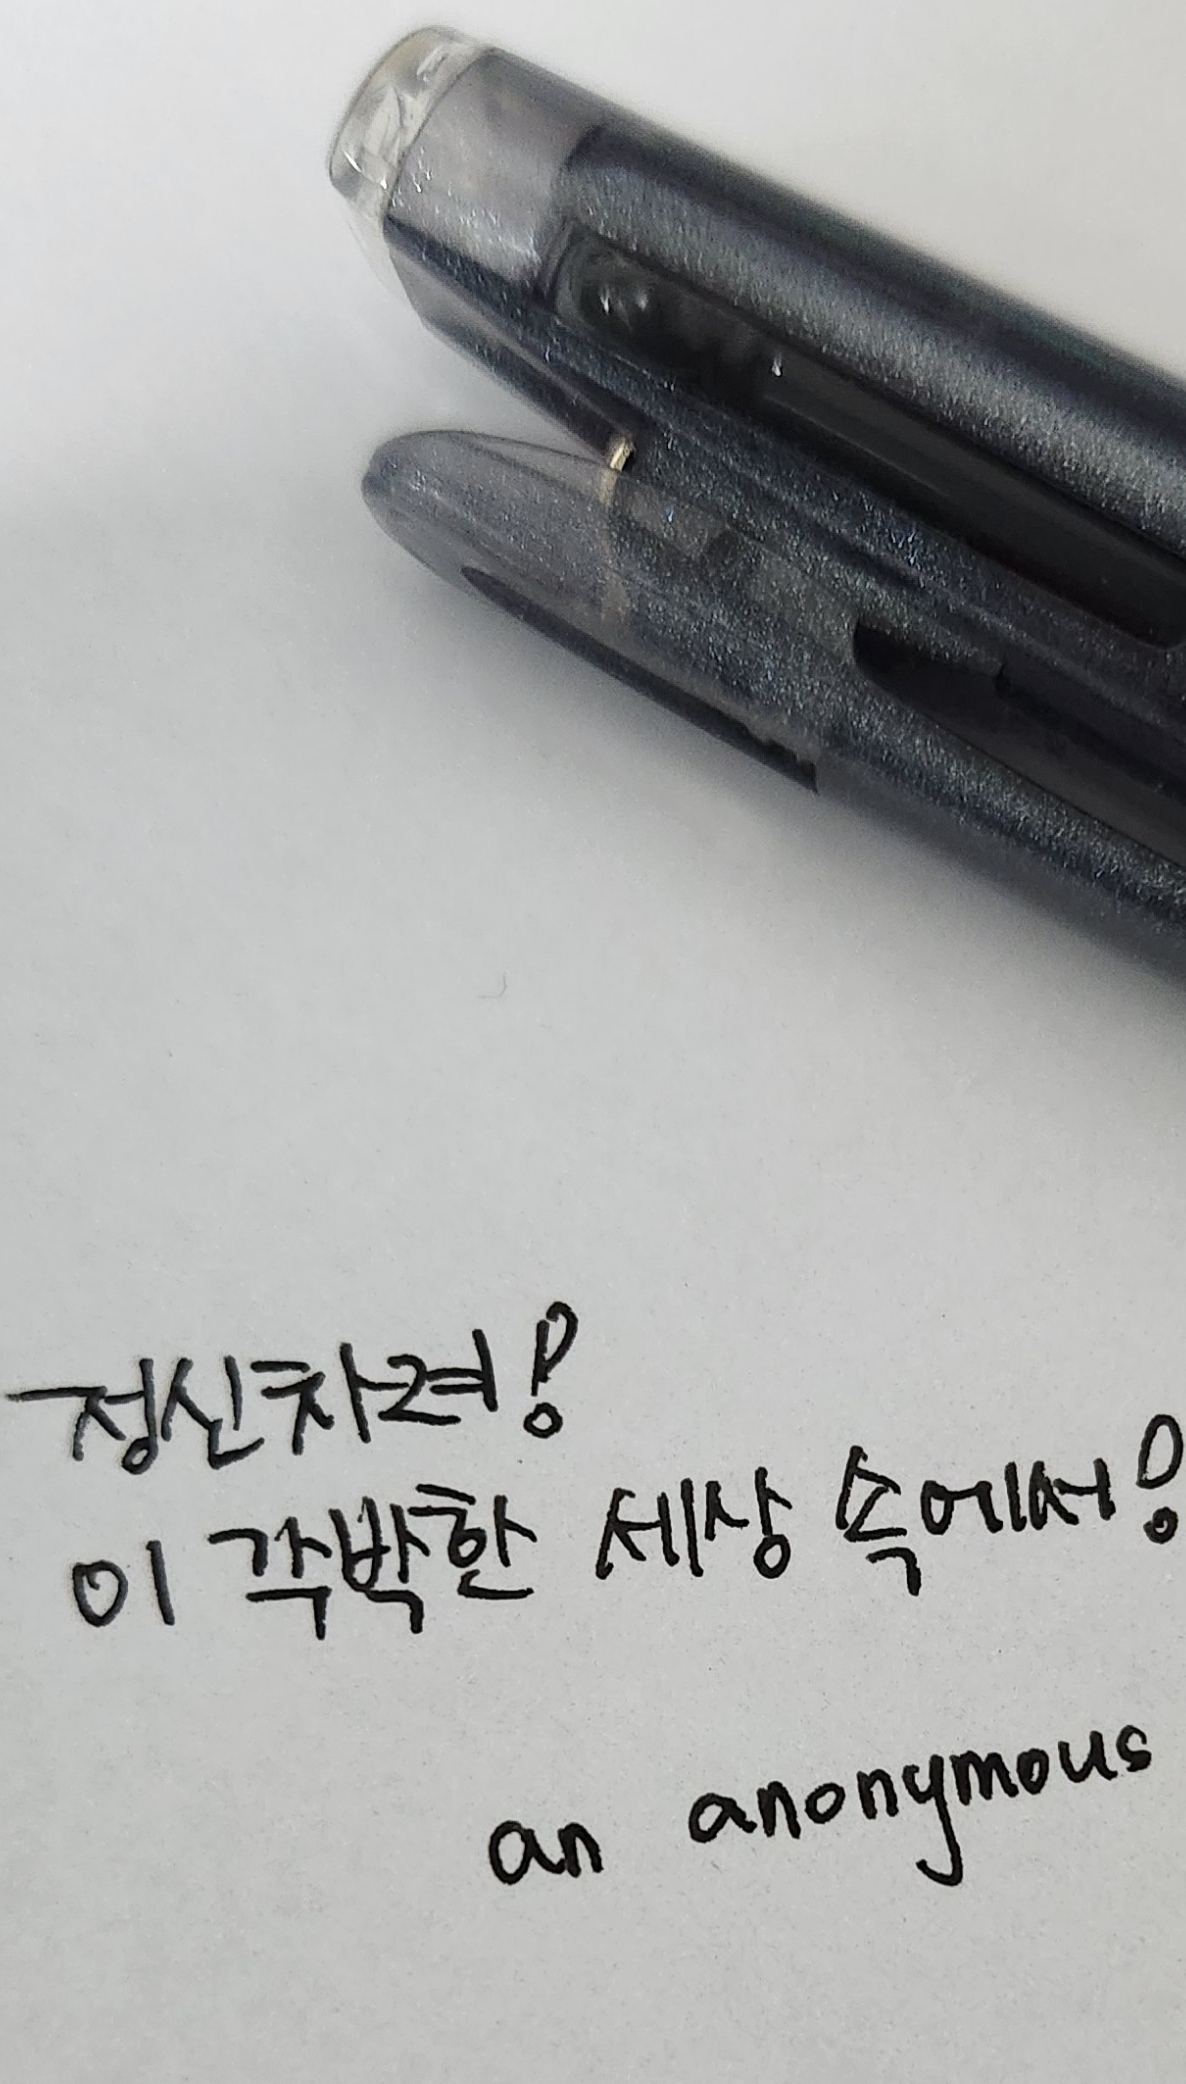 정신차려!
이 각박한 세상 속에서!
an anonymous